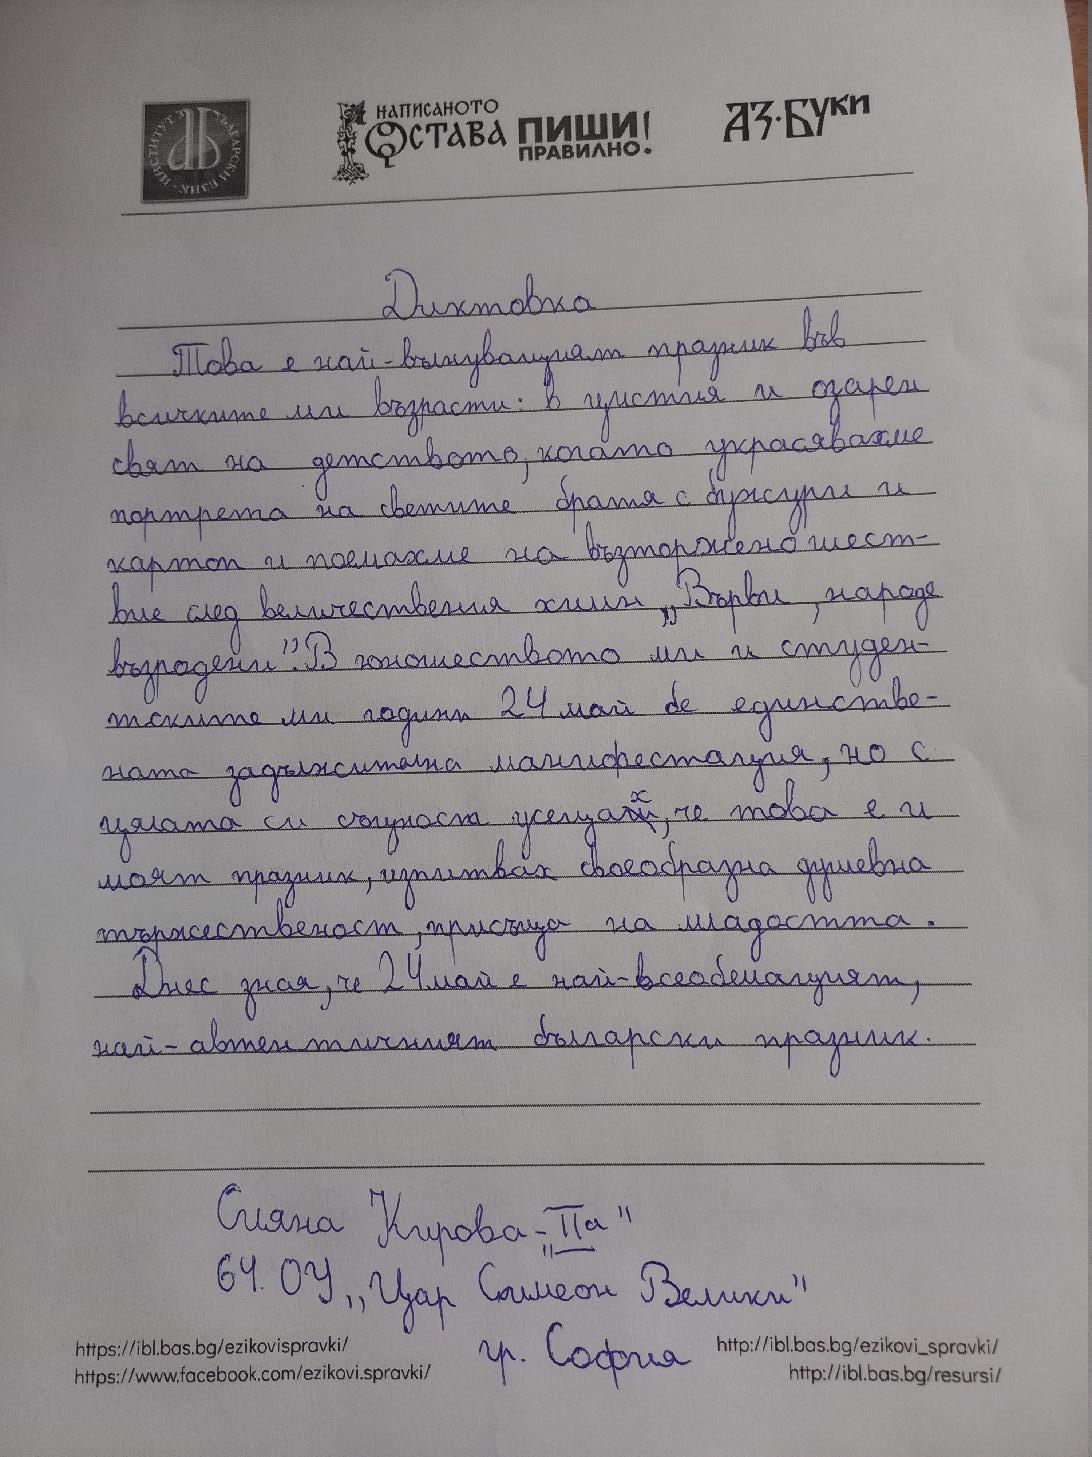 ИНСТИТУТ ЗА БЪЛГАРСКИ ЕЗИК
НАПИСАНОТО
ОСТАВА
ПИШИ!
ПРАВИЛНО.
АЗ·БУКИ
Диктовка
Това е най-вълнуващият празник във
всичките ми възрасти: в чистия и озарен
свят на детството, когато украсявахме
портрета на светите братя с божури и
картоп и поемахме на възторжено шест-
вие след величествения химн „Върви, народе
възрадени". В юношеството ми и студен-
тските ми години 24 май бе единстве-
ната задължителна манифестация, но с
цялата си същност усещах, че това е и
моят празник, изпитвах своеобразна душевна
тържественост, присъща на младостта.
Днес зная, че 24 май е най-всеобемащият,
най-автентичният български празник.
Сияна Кирова - „IIа"
64. ОУ „Цар Симеон Велики"
гр. София
https://ibl.bas.bg/ezikovispravki/
https://www.facebook.com/ezikovi.spravki/
http://ibl.bas.bg/ezikovi_spravki/
http://ibl.bas.bg/resursi/